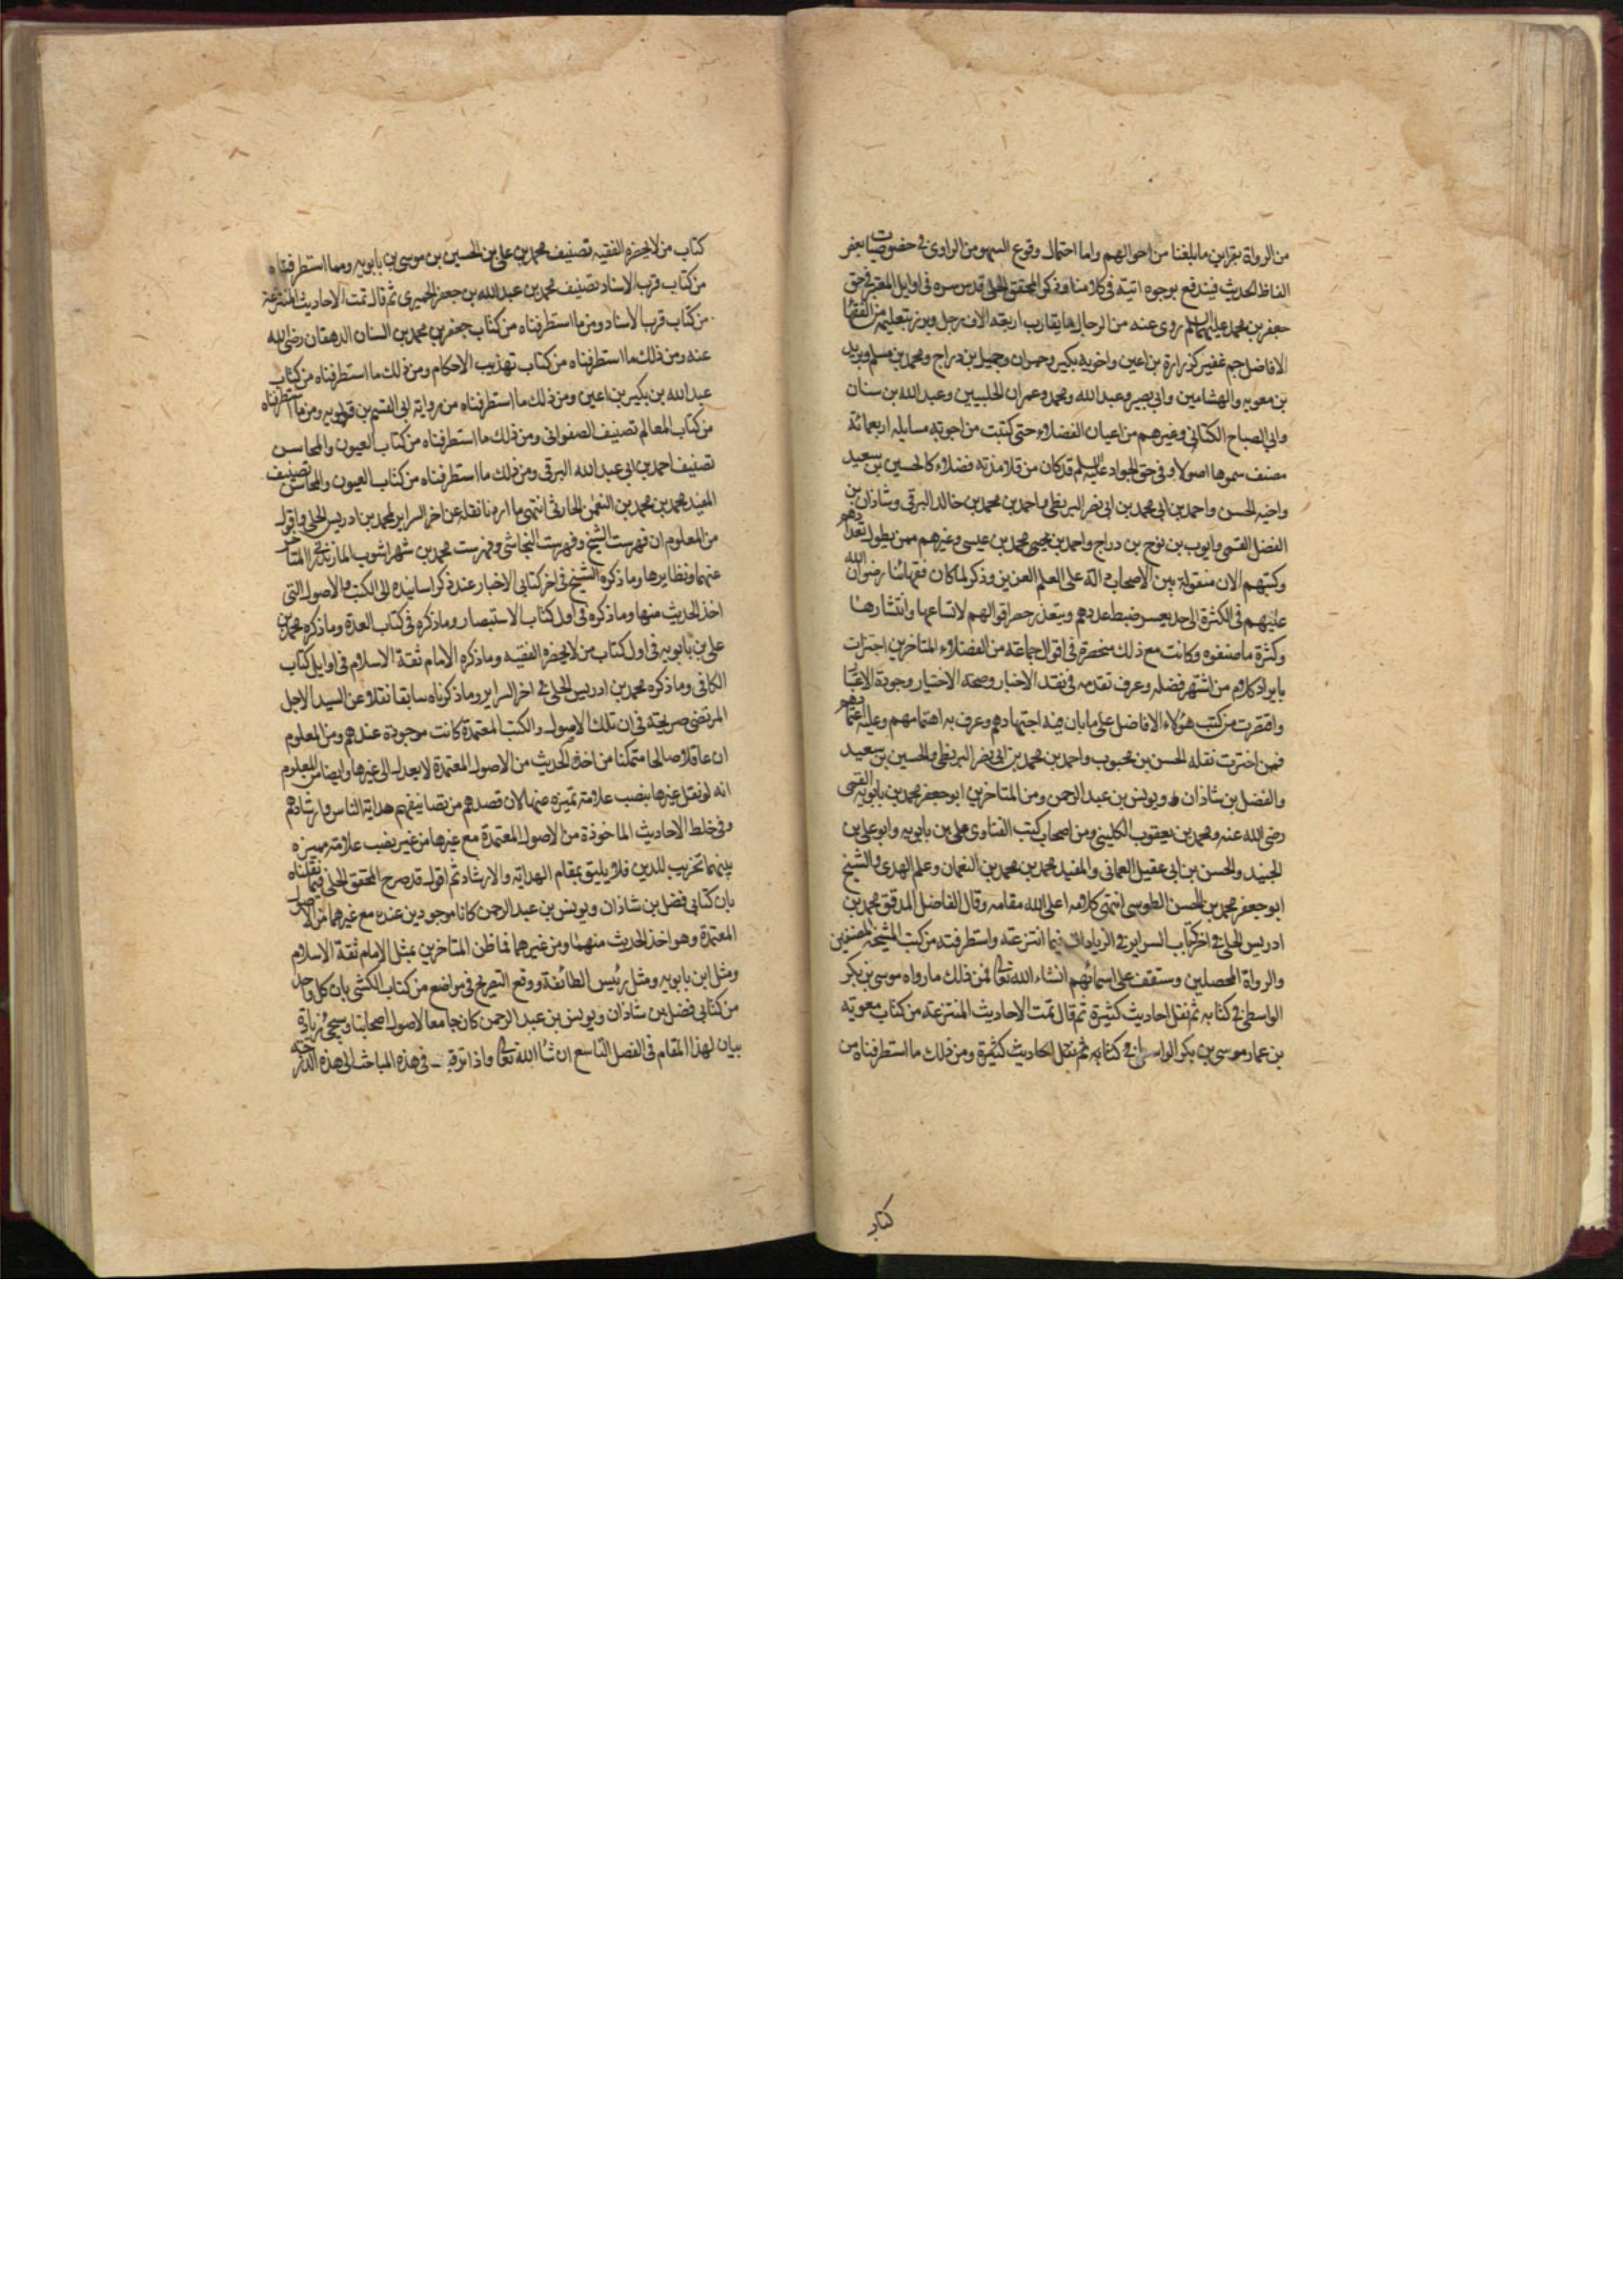 من الرواة بقراين ما بلغنا من احوالهم واما احتمال وقوع السهو من الراوى فى خصوصيات بعض
الفاظ الحديث فيندفع بوجوه اتية فى كلامنا وذكر المحقق الحلى قدس سره فى اوايل المعتبر فى حق
جعفر بن محمد عليهما السلم روى عنه من الرجال ما يقارب اربعة الاف رجل وبرز بتعليمه من الفقها
الافاضل جم غفير كزرارة بن اعين واخويه بكير وحمران وجميل بن دراج ومحمد بن مسلم وبريد
بن معويه والهشامين وابى بصير وعبد الله ومحمد وعمران الحلبيين وعبد الله بن سنان
وابى الصباح الكنانى وغيرهم من اعيان الفضلاء حتى كتبت من اجوبة مسايله اربعمائة
مصنف سموها اصولا وفى حق الجواد عليه السلم قد كان من تلامذته فضلاء كالحسين بن سعيد
واخيه الحسن واحمد بن ابى محمد بن ابى نصر البزنطى واحمد بن محمد بن خالد البرقى وشاذان بن
الفضل القمى وايوب بن نوح بن دراج واحمد بن محمد بن عيسى وغيرهم ممن يطول تعدادهم
وكتبهم الان منقولة بين الاصحاب دالة على العلم الغزير وذكر لما كان فقهائنا رضوان الله
عليهم فى الكثرة الى حد يعسر ضبط عددهم ويتعذر حصر اقوالهم لاتساعها وانتشارها
وكثرة ما صنفوه وكانت مع ذلك منحصرة فى اقوال جماعة من الفضلاء المتاخرين اجتزات
بايراد كلام من اشتهر فضله وعرف تقدمه فى نقد الاخبار وصحة الاختيار وجودة الاعتبار
واقتصرت من كتب هؤلاء الافاضل على ما بان فيه اجتهادهم وعرف به اهتمامهم وعليه اعتمادهم
فممن اخترت نقله الحسن بن محبوب واحمد بن محمد بن ابى نصر البزنطى والحسين بن سعيد
والفضل بن شاذان ويونس بن عبد الرحمن ومن المتاخرين ابو جعفر محمد بن بابويه القمى
رضى الله عنه ومحمد بن يعقوب الكلينى ومن اصحاب كتب الفتاوى على بن بابويه وابو على بن
الجنيد والحسن بن ابى عقيل العمانى والمفيد محمد بن محمد بن النعمان وعلم الهدى والشيخ
ابو جعفر محمد بن الحسن الطوسى انتهى كلامه اعلى الله مقامه وقال الفاضل المدقق محمد بن
ادريس الحلى فى اخر كتاب السراير فى الزيادات فيما انتزعته واستطرفته من كتب المشيخة المصنفين
والرواة المحصلين وستقف على اسمائهم انشاء الله تعالى فمن ذلك ما رواه موسى بن بكر
الواسطى فى كتابه ثم نقل احاديث كثيرة ثم قال تمت الاحاديث المنتزعة من كتاب معوية
بن عمار موسى بن بكر فى كتابه ثم نقل احاديث كثيرة ومن ذلك ما استطرفناه من
كتاب
كتاب من لا يحضره الفقيه تصنيف محمد بن على بن الحسين بن موسى بن بابويه ومما استطرفناه
من كتاب قرب الاسناد تصنيف محمد بن عبد الله بن جعفر الحميرى ثم قال تمت الاحاديث المنتزعة
من كتاب قرب الاسناد ومن ما استطرفناه من كتاب جعفر بن محمد بن السنان الدهقان رضى الله
عنه ومن ذلك ما استطرفناه من كتاب تهذيب الاحكام ومن ذلك ما استطرفناه من كتاب
عبد الله بن بكير بن اعين ومن ذلك ما استطرفناه من رواية ابى القسم بن قولويه ومن ما استطرفناه
من كتاب المعالم تصنيف الصفوانى ومن ذلك ما استطرفناه من كتاب العيون والمحاسن
تصنيف احمد بن ابى عبد الله البرقى ومن ذلك ما استطرفناه من كتاب العيون والمحاسن تصنيف
المفيد محمد بن محمد بن النعمن الحارثى انتهى ما اردنا نقله عن اخر السراير لمحمد بن ادريس الحلى واقول
من المعلوم ان فهرست الشيخ وفهرست النجاشى وفهرست محمد بن شهراشوب المازندرانى المتاخر
عنهما ونظايرها وما ذكره الشيخ فى اخر كتابى الاخبار عند ذكر اسانيده الى الكتب والاصول التى
اخذ الحديث منها وما ذكره فى اول كتاب الاستبصار وما ذكره فى كتاب العدة وما ذكره محمد بن
على بن بابويه فى اول كتاب من لا يحضره الفقيه وما ذكره الامام ثقة الاسلام فى اوايل كتاب
الكافى وما ذكره محمد بن ادريس الحلى فى اخر السراير وما ذكرناه سابقا نقلا عن السيد الاجل
المرتضى صريحة فى ان تلك الاصول والكتب المعتمدة كانت موجودة عندهم ومن المعلوم
ان عاقلا صالحا متمكنا من اخذ الحديث من الاصول المعتمدة لا يعدل الى غيرها وايضا من المعلوم
انه لو نقل غيرها ينصب علامة تميزه عنها لان قصدهم من تصانيفهم هداية الناس وارشادهم
وفى خلط الاحاديث الماخوذة من الاصول المعتمدة مع غيرها من غير نصب علامة مميزة
بينهما تخريب للدين فلا يليق بمقام الهداية والارشاد ثم اقول قد صرح المحقق الحلى فيما نقلناه
بان كتابى فضل بن شاذان ويونس بن عبد الرحمن كانا موجودين عنده مع غيرهما من الاصول
المعتمدة وهو اخذ الحديث منهما ومن غيرهما فما ظن المتاخرين بمثل الامام ثقة الاسلام
ومثل ابن بابويه ومثل رئيس الطائفة ووقع التصريح فى مواضع من كتاب الكشى بان كل واحد
من كتابى فضل بن شاذان ويونس بن عبد الرحمن كان جامعا لاصول اصحابنا وسيجئ زيادة
بيان لهذا المقام فى الفصل التاسع ان شا الله تعالى واذا فى هذه المباحث الى هذه الدرجة